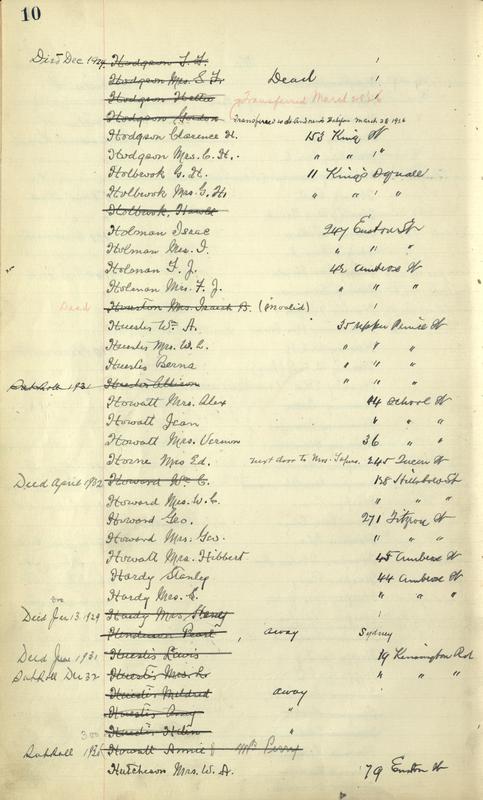 10
Died Dec 1924 Hodgson T. H.
Hodgson Mrs. S. Fr Dead
Hodgson Hattie Transferred March 28 26
Hodgson Gordon Transferred to St. Andrews Halifax March 28 1926
Hodgson Clarence H. 153 King St
Hodgson Mrs. C. H. " " "
Holbrook G. H. 11 King's Square
Holbrook Mrs. G. H. " " "
Holbrook, Harold
Holman Isaac 247 Euston St
Holman Mrs. I. " " "
Holman F. J. 42 Ambrose St
Holman Mrs. F. J. " " "
Dead Houston Mrs. Isaiah B. (invalid)
Huestis Wm. A. 35 Upper Prince St
Huestis Mrs. W. A. " " "
Huestis Berna " " "
1931 Huestis Addison " " "
Howatt Mrs. Alex 94 School St
Howatt Jean " " "
Howatt Mrs. Vernon 36 " "
Horne Mrs Ed. next door to Mrs. 245 Queen St
Died April 1932 Howard Wm. C. 138 Hillsboro St
Howard Mrs. W. C. " " "
Howard Geo. 271 Fitzroy St
Howard Mrs. Geo. " " "
Howatt Mrs. Hibbert 45 Ambrose St
Hardy Stanley 44 Ambrose St
Hardy Mrs. S. " " "
Died Jan 13 1929 Hardy Mrs Stanley
Henderson Pearl, away Sydney
Died June 1931 Huestis Lewis 19 Kensington Rd
Dec 32 Huestis Mrs. L. " " "
Huestis Mildred away
Huestis "
Huestis Helen "
Howatt Annie Mrs Perry
Hutcheson Mrs. W. A. 79 Euston St